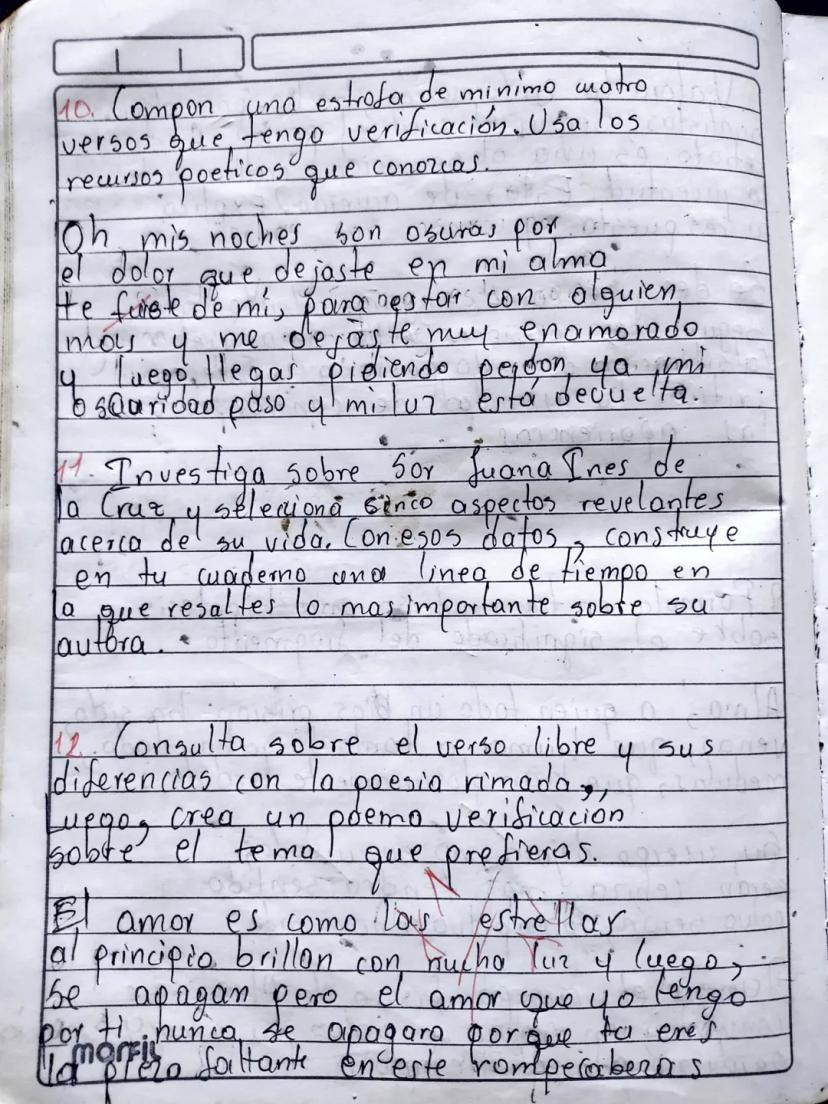 10. Compon una estrofa de minimo cuatro
versos que, tengo verificación. Usa los
recursos poeticos que conozcas.
Oh mis noches son oscuras por
el dolor que dejaste en mi alma
te fuiste de mi, para nestar con alguien
mas y me dejaste muy enamorado
y luego llegas pidiendo perdon ya mi
oscuridad paso y mi luz está devuelta.
11. Investiga sobre Sor Juana Ines de
la Cruz y selecciona cinco aspectos revelantes
acerca de su vida. Con esos datos, construye
en tu cuaderno una linea de tiempo en
la que resaltes lo mas importante sobre su
autora.
12. Consulta sobre el verso libre y sus
diferencias con la poesia rimada,,
Luego, crea un poema verificación
sobre el tema que prefieras.
El amor es como las estrellas
al principio brillan con mucha luz y luego,
se apagan pero el amor que yo tengo
por ti nunca se apagara porque tu eres
la pieza faltante en este rompecabezas
morfil